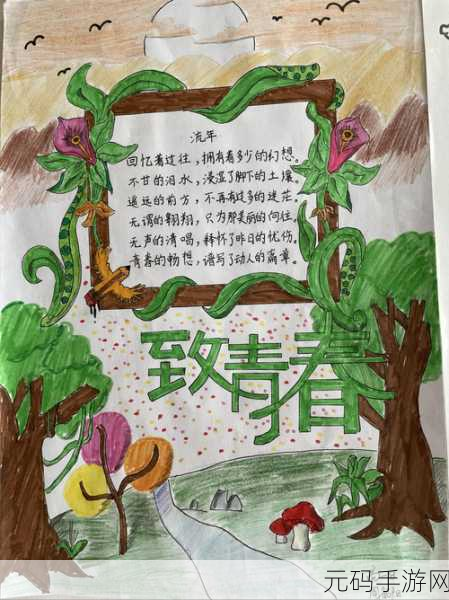 流年
回忆着过往，拥有着多少的幻想。
不甘的泪水，浸湿了脚下的土壤。
遥远的前方，不再有过多的迷茫。
无谓的翱翔，只为那美丽的向往。
无声的清唱，释怀了昨日的忧伤。
青春的畅想，谱写了动人的篇章。
致青春
元码手游网